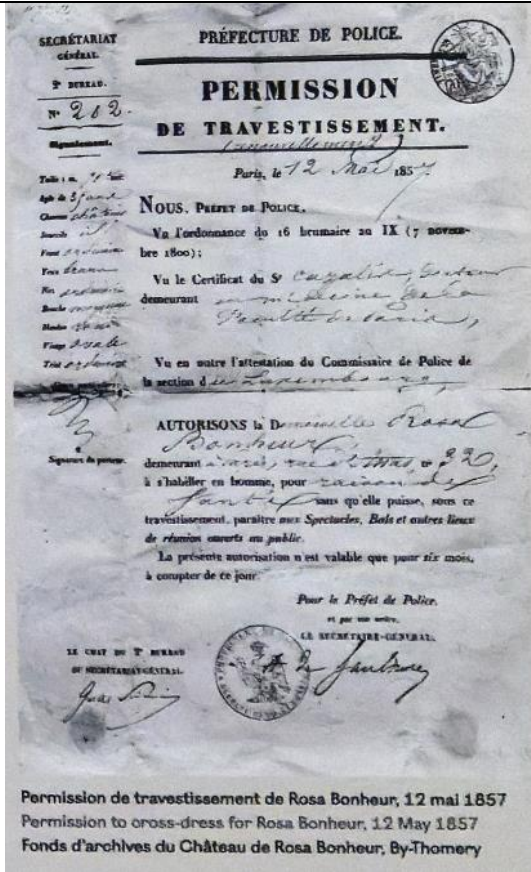 SECRÉTARIAT
GÉNÉRAL.
2e BUREAU.
No 202.
Signalement.
Taille
Âgée de
Cheveux châtains
Sourcils id.
Front ordinaire
Yeux bruns
Nez ordinaire
Bouche moyenne
Menton rond
Visage ovale
Teint ordinaire
Signature du porteur.
PRÉFECTURE DE POLICE.
PERMISSION
DE TRAVESTISSEMENT.
(renouvellement)
Paris, le 12 Mai 1857
NOUS, PRÉFET DE POLICE,
Vu l'ordonnance du 16 brumaire an IX (7 novem-
bre 1800);
Vu le Certificat du Sr Cazalis, docteur
demeurant en médecine de la
Faculté de Paris,
Vu en outre l'attestation du Commissaire de Police de
la section du Luxembourg,
AUTORISONS la Demoiselle Rosa
Bonheur,
demeurant à Paris, rue d'Assas, no 32,
à s'habiller en homme, pour raison de
santé sans qu'elle puisse, sous ce
travestissement, paraître aux Spectacles, Bals et autres lieux
de réunion ouverts au public.
La présente autorisation n'est valable que pour six mois,
à compter de ce jour.
Pour le Préfet de Police,
et par son ordre,
LE SECRÉTAIRE-GÉNÉRAL,
LE CHEF DU 2e BUREAU
DU SECRÉTARIAT-GÉNÉRAL.
Permission de travestissement de Rosa Bonheur, 12 mai 1857
Permission to cross-dress for Rosa Bonheur, 12 May 1857
Fonds d'archives du Château de Rosa Bonheur, By-Thomery